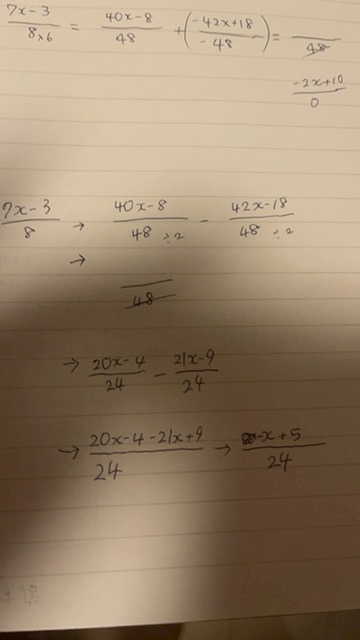 7x-3/8×6 = 40x-8/48 + (-42x+18/-48) = /48
-2x+10/0
7x-3/8 → 40x-8/48÷2 - 42x-18/48÷2
→ /48
→ 20x-4/24 - 21x-9/24
→ 20x-4-21x+9/24 → -x+5/24